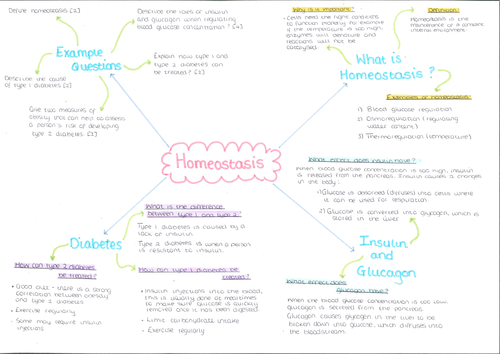 Define homeostasis [2]
Describe the roles of insulin
and glucagon when regulating
blood glucose concentration? [4]
Example
Questions
Explain how type 1 and
type 2 diabetes can
be treated? [2]
Describe the cause
of type 1 diabetes [2]
Give two measures of
obesity that can help to assess
a person's risk of developing
type 2 diabetes. [2]
Why is it important?
Cells need the right conditions
to function properly. For example
if the temperature is too high,
enzymes will denature and
reactions will not be
catalysed.
Definition:
Homeostasis is the
maintenance of a constant
internal environment.
What is
Homeostasis?
Examples of homeostasis:
1) Blood glucose regulation
2) Osmoregulation (regulating
water content)
3) Thermoregulation (temperature)
Homeostasis
What effect does insulin have?
When blood glucose concentration is too high, insulin
is released from the pancreas. Insulin causes 2 changes
in the body:
1) Glucose is absorbed (diffuses) into cells where
it can be used for respiration
2) Glucose is converted into glycogen, which is
stored in the liver
Insulin
and
Glucagon
What effect does
glucagon have?
When the blood glucose concentration is too low,
glucagon is secreted from the pancreas.
Glucagon causes glycogen in the liver to be
broken down into glucose, which diffuses into
the bloodstream.
What is the difference
between type 1 and type 2?
Type 1 diabetes is caused by a
lack of insulin.
Type 2 diabetes is when a person
is resistant to insulin.
Diabetes
How can type 2 diabetes
be treated?
• Good diet - there is a strong
correlation between obesity
and type 2 diabetes.
• Exercise regularly
• Some may require insulin
injections
How can type 1 diabetes be
treated?
• Insulin injections into the blood,
this is usually done at mealtimes
to make sure glucose is quickly
removed once it has been digested.
• Limit carbohydrate intake
• Exercise regularly